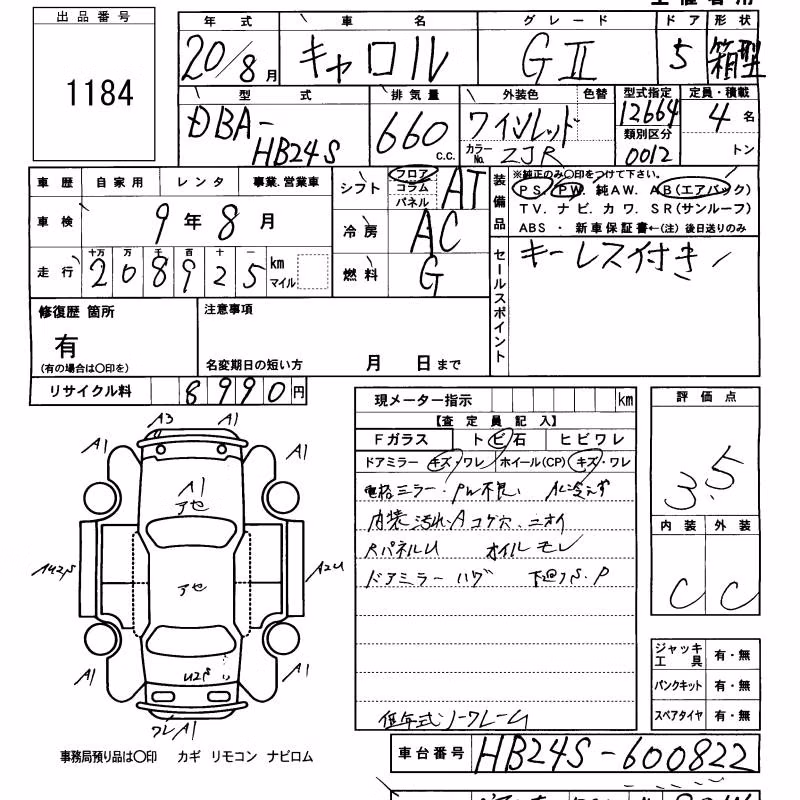 出品番号
1184
年式 車名 グレード ドア 形状
20/8月 キャロル GⅡ 5 箱型
型式 排気量 外装色 色替 型式指定 定員・積載
DBA-HB24S 660 C.C. ワインレッド 12664 4名
カラーNo. ZJR 類別区分 0012 トン
車歴 自家用 レンタ 事業.営業車 シフト フロア コラム パネル AT
車検 9年8月 冷房 AC
走行 十万 万 千 百 十 一 208925 km マイル 燃料 G
装備品
※純正のみ〇印をつけて下さい。
PS PW 純AW. AB(エアバック)
TV. ナビ. カワ. SR(サンルーフ)
ABS ・ 新車保証書←(注) 後日送りのみ
セールスポイント
キーレス付き
修復歴 箇所
有
(有の場合は〇印を)
注意事項
名変期日の短い方 月 日まで
リサイクル料 8990円
現メーター指示 km
【査定員記入】
Fガラス トビ石 ヒビワレ
ドアミラー キズ・ワレ ホイール(CP) キズ・ワレ
電格ミラー・PW不良. AC冷えず
内装 汚れ・A コゲ穴. ニオイ
RパネルU オイルモレ
ドアミラー ハゲ 下回りS.P
低年式ノークレーム
評価点
3.5
内装 外装
C C
ジャッキ工具 有・無
パンクキット 有・無
スペアタイヤ 有・無
車台番号 HB24S-600822
A3 A1
A1 A1
A1
アセ
アセ
A2U
A1 A1
ワレA1
事務局預り品は〇印 カギ リモコン ナビロム